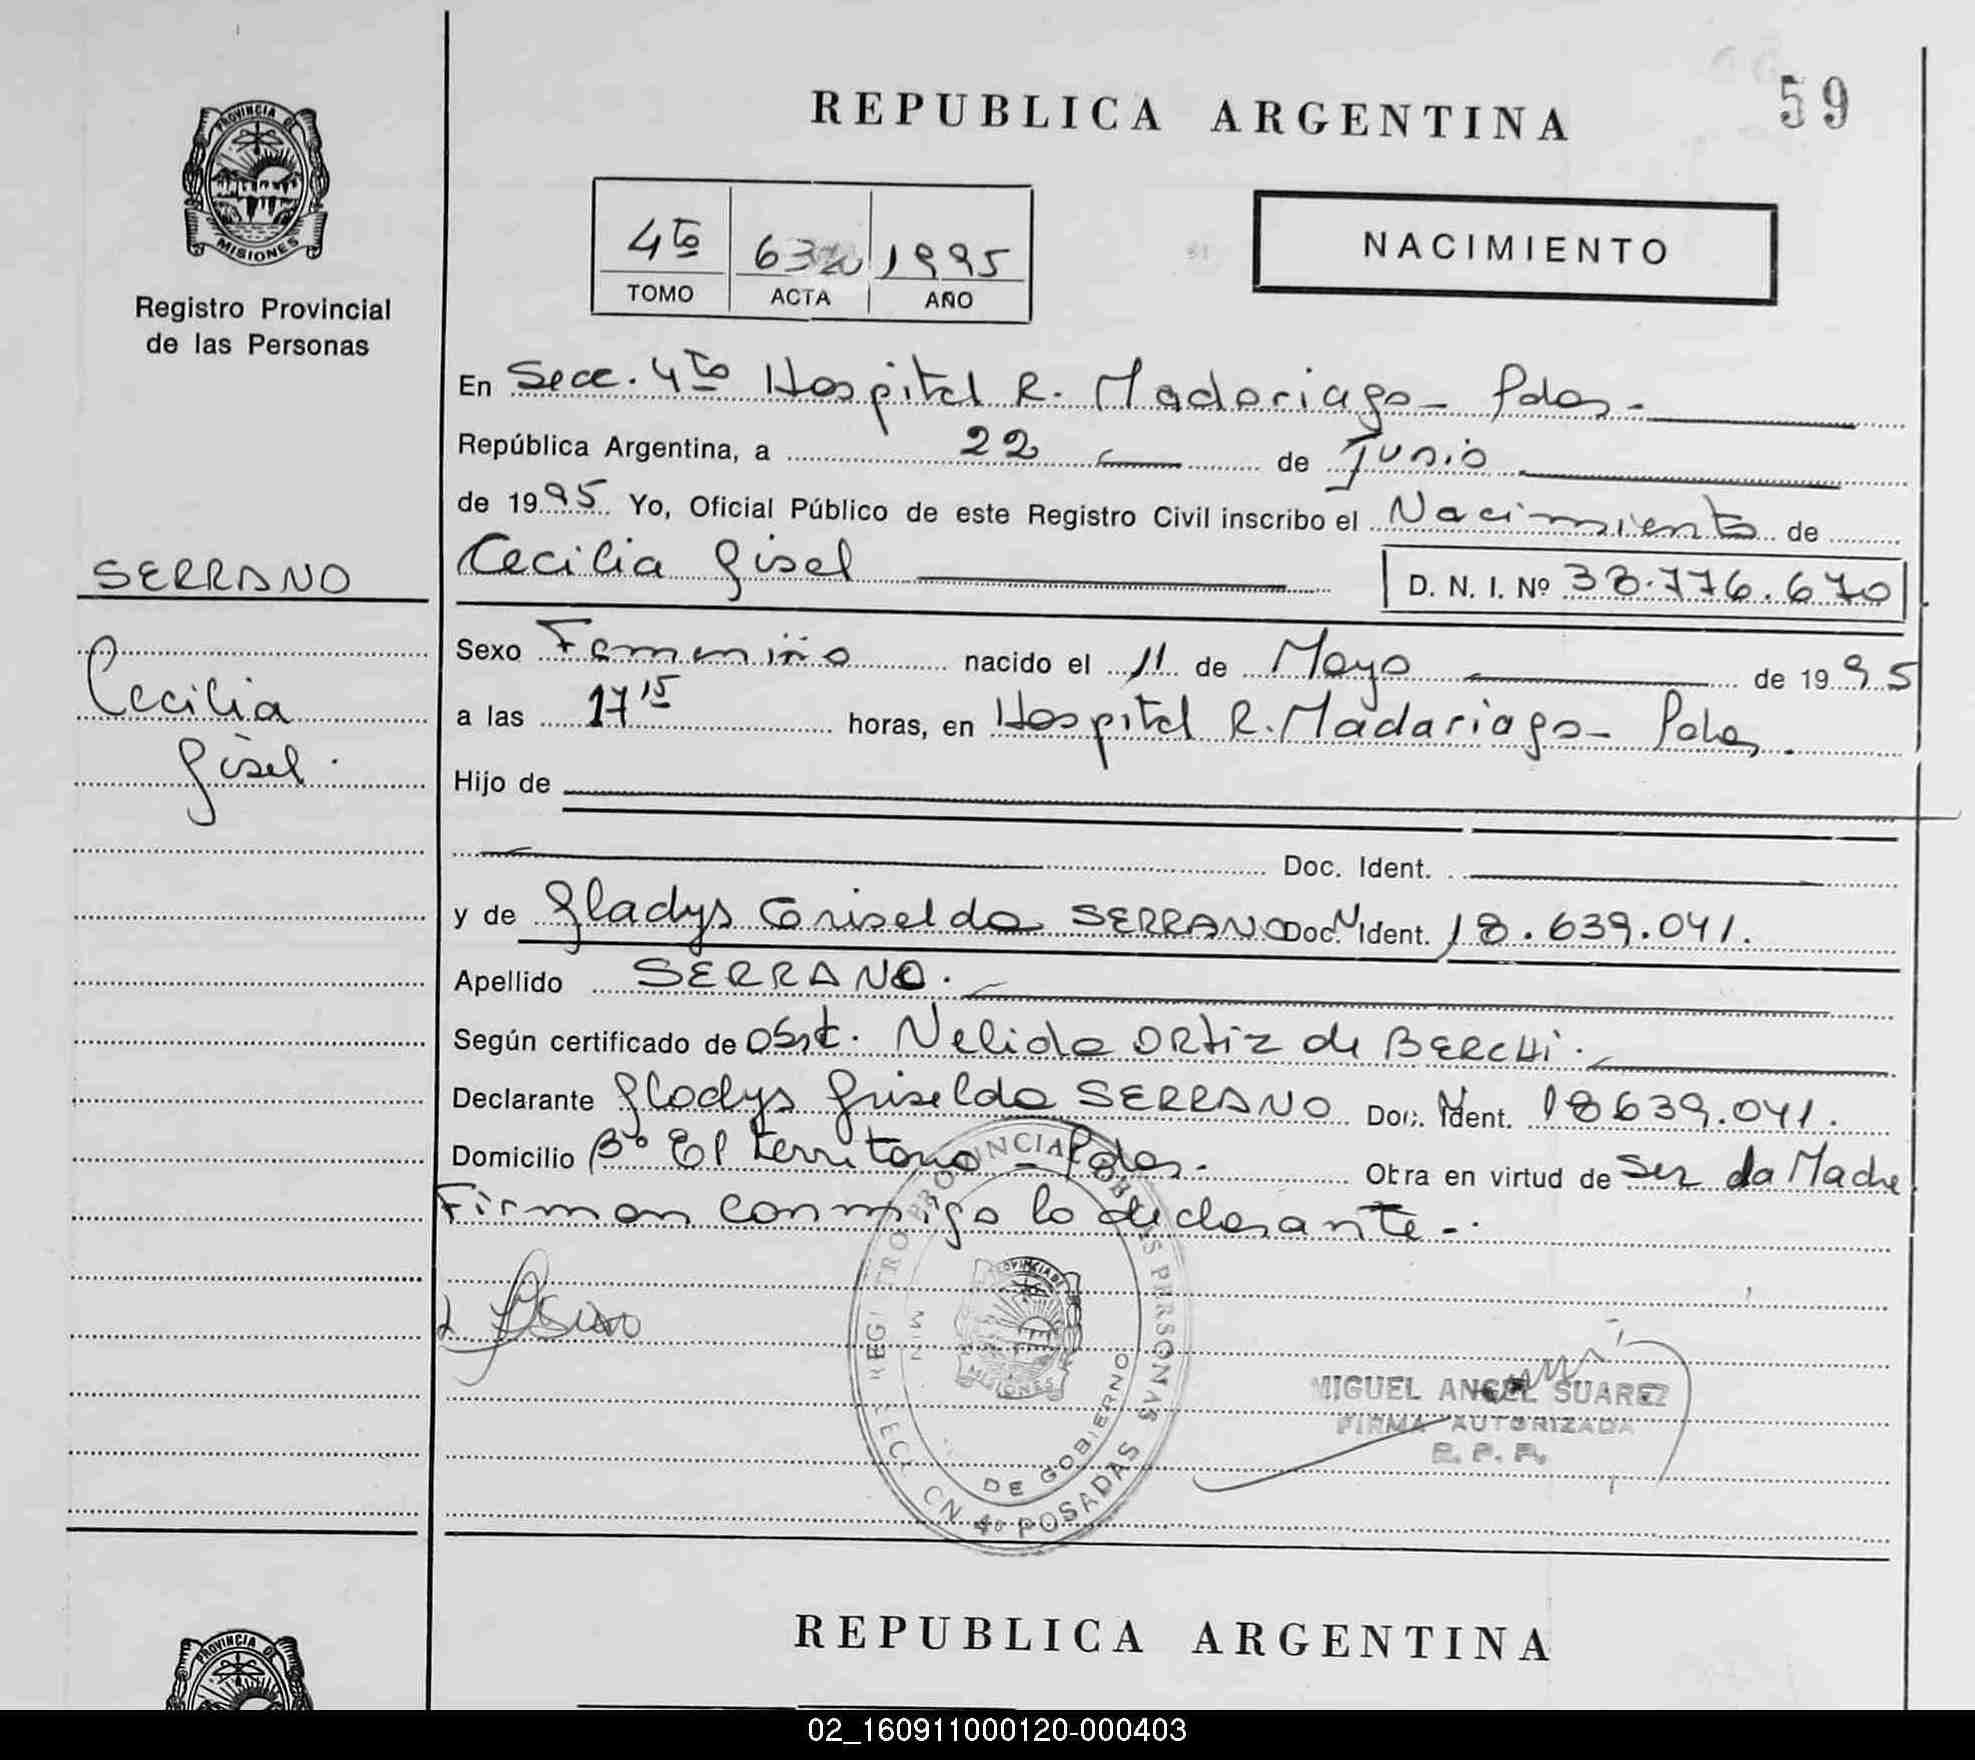 59
REPUBLICA ARGENTINA
PROVINCIA DE
MISIONES
Registro Provincial
de las Personas
4to 1995
TOMO ACTA AÑO
NACIMIENTO
En Secc. 4to Hospital R. Madariaga - Pdas -
República Argentina, a 22 de Junio
de 1995 Yo, Oficial Público de este Registro Civil inscribo el Nacimiento de
Cecilia Gisel D. N. I. Nº 38.776.670
SERRANO
Cecilia
Gisel.
Sexo Femenino nacido el 11 de Mayo de 1995
a las 17 15 horas, en Hospital R. Madariaga - Pdas.
Hijo de
Doc. Ident.
y de Gladys Griselda SERRANO Doc. Ident. 18.639.041.
Apellido SERRANO.
Según certificado de Obst. Nelida ORtiz de BERCHi.
Declarante Gladys Griselda SERRANO Doc. Ident. 18639.041.
Domicilio Bº El territorio - Pdas. Obra en virtud de Ser la Madre
Firman conmigo la declarante -.
REGISTRO PROVINCIAL DE LAS PERSONAS
PROVINCIA DE
MISIONES
DE GOBIERNO
4º POSADAS
MIGUEL ANGEL SUAREZ
FIRMA AUTORIZADA
R. P. P.
REPUBLICA ARGENTINA
PROVINCIA DE
02_160911000120-000403